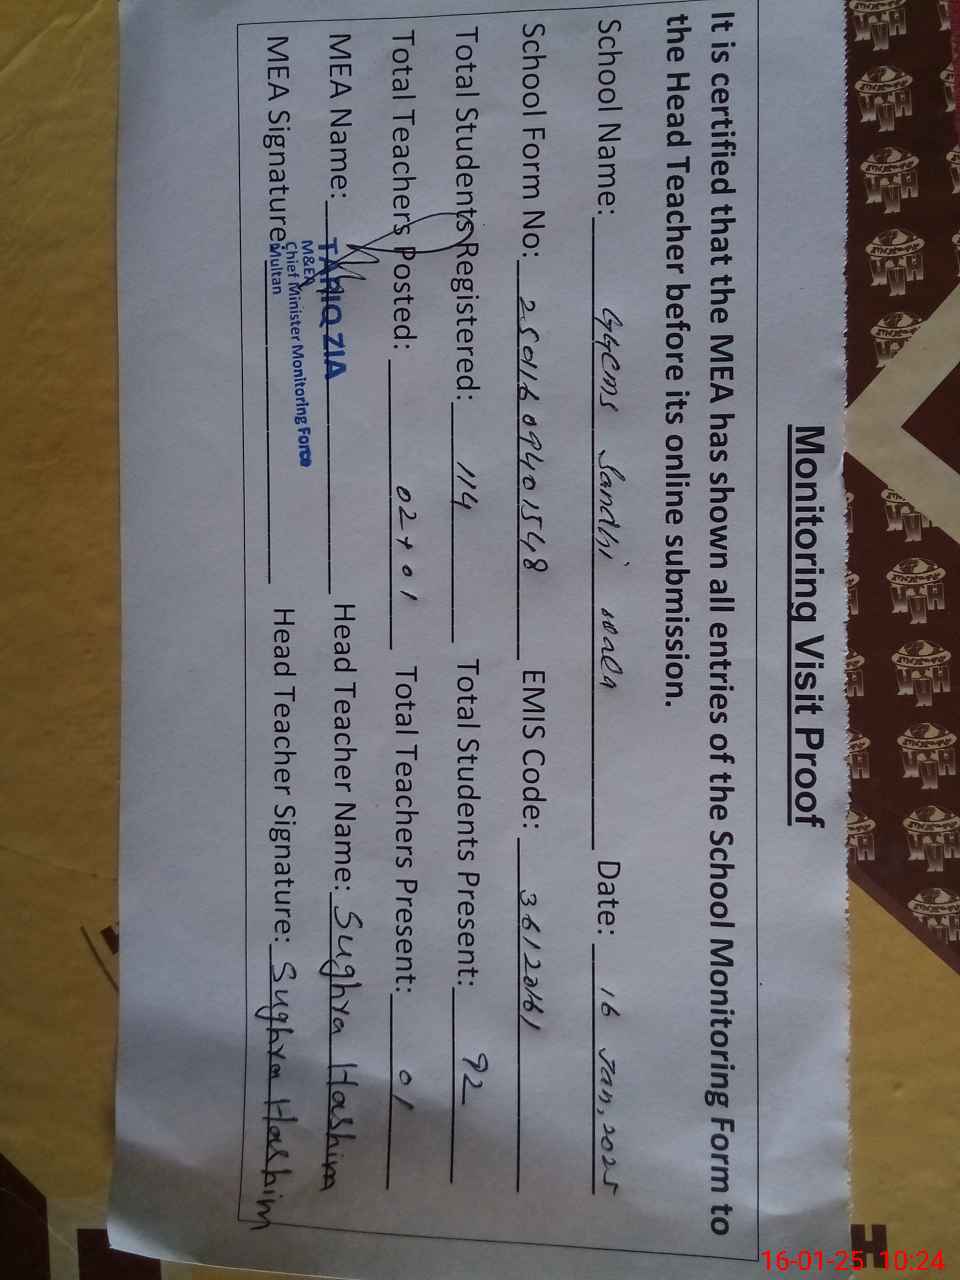 Monitoring Visit Proof
It is certified that the MEA has shown all entries of the School Monitoring Form to
the Head Teacher before its online submission.
School Name: GGCMS Sandhi wala Date: 16 Jan, 2025
School Form No: 25011609401548 EMIS Code: 36120161
Total Students Registered: 114 Total Students Present: 92
Total Teachers Posted: 02+01 Total Teachers Present: 01
MEA Name: TARIQ ZIA Head Teacher Name: Sughra Hashim
M&EA
Chief Minister Monitoring Force
Multan
MEA Signature: Head Teacher Signature: Sughra Hashim
16-01-25 10:24